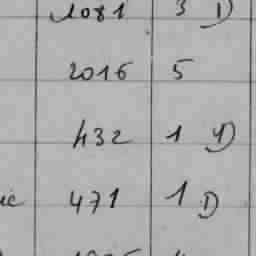 1081 3 D
2016 5
432 1 D
471 1 D